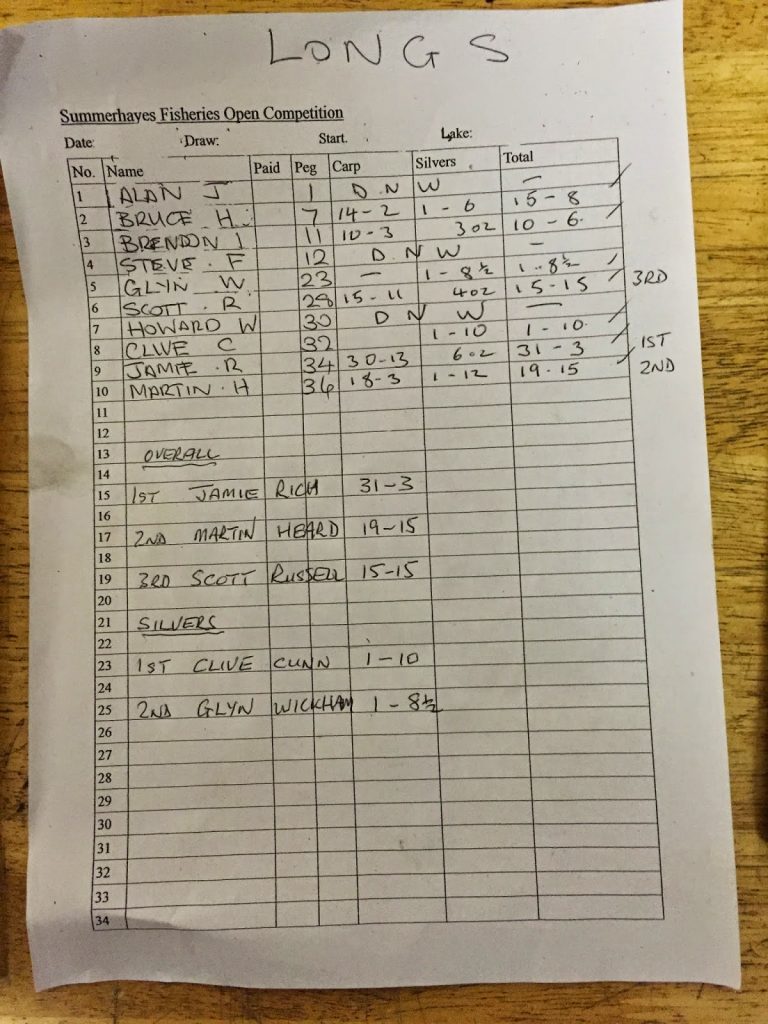 LONGS
Summerhayes Fisheries Open Competition
Date: Draw: Start. Lake:
No. Name Paid Peg Carp Silvers Total
1 ALAN J 1 D N W —
2 BRUCE H. 7 14-2 1-6 15-8
3 BRENDON J 11 10-3 3oz 10-6
4 STEVE . F 12 D N W —
5 GLYN W. 23 — 1-8½ 1-8½
6 SCOTT . R 28 15-11 4oz 15-15 3RD
7 HOWARD W 30 D N W —
8 CLIVE C 32 1-10 1-10
9 JAMIE . R 34 30-13 6oz 31-3 1ST
10 MARTIN . H 36 18-3 1-12 19-15 2ND
11
12
13 OVERALL
14
15 1ST JAMIE RICH 31-3
16
17 2ND MARTIN HEARD 19-15
18
19 3RD SCOTT RUSSELL 15-15
20
21 SILVERS
22
23 1ST CLIVE CUNN 1-10
24
25 2ND GLYN WICKHAM 1-8½
26
27
28
29
30
31
32
33
34